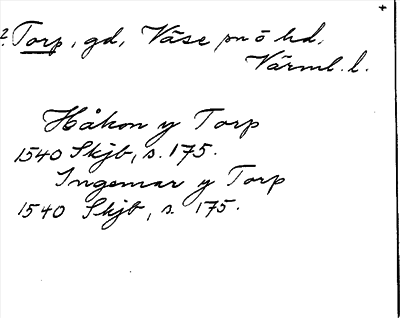 2. Torp, gd, Väse sn o hd.
Värml. l.
Håkon y Torp
1540 Skjb, s. 175.
Ingemar y Torp
1540 Skjb, s. 175.